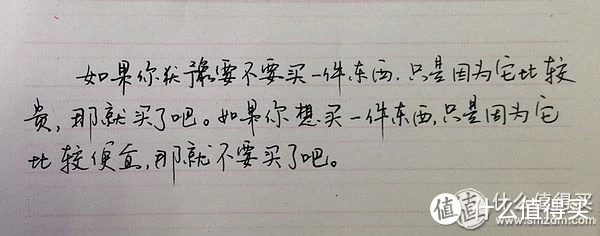 如果你犹豫要不要买一件东西，只是因为它比较
贵，那就买了吧。如果你想买一件东西，只是因为它
比较便宜，那就不要买了吧。
值 什么值得买
www.smzdm.com
值 什么值得买